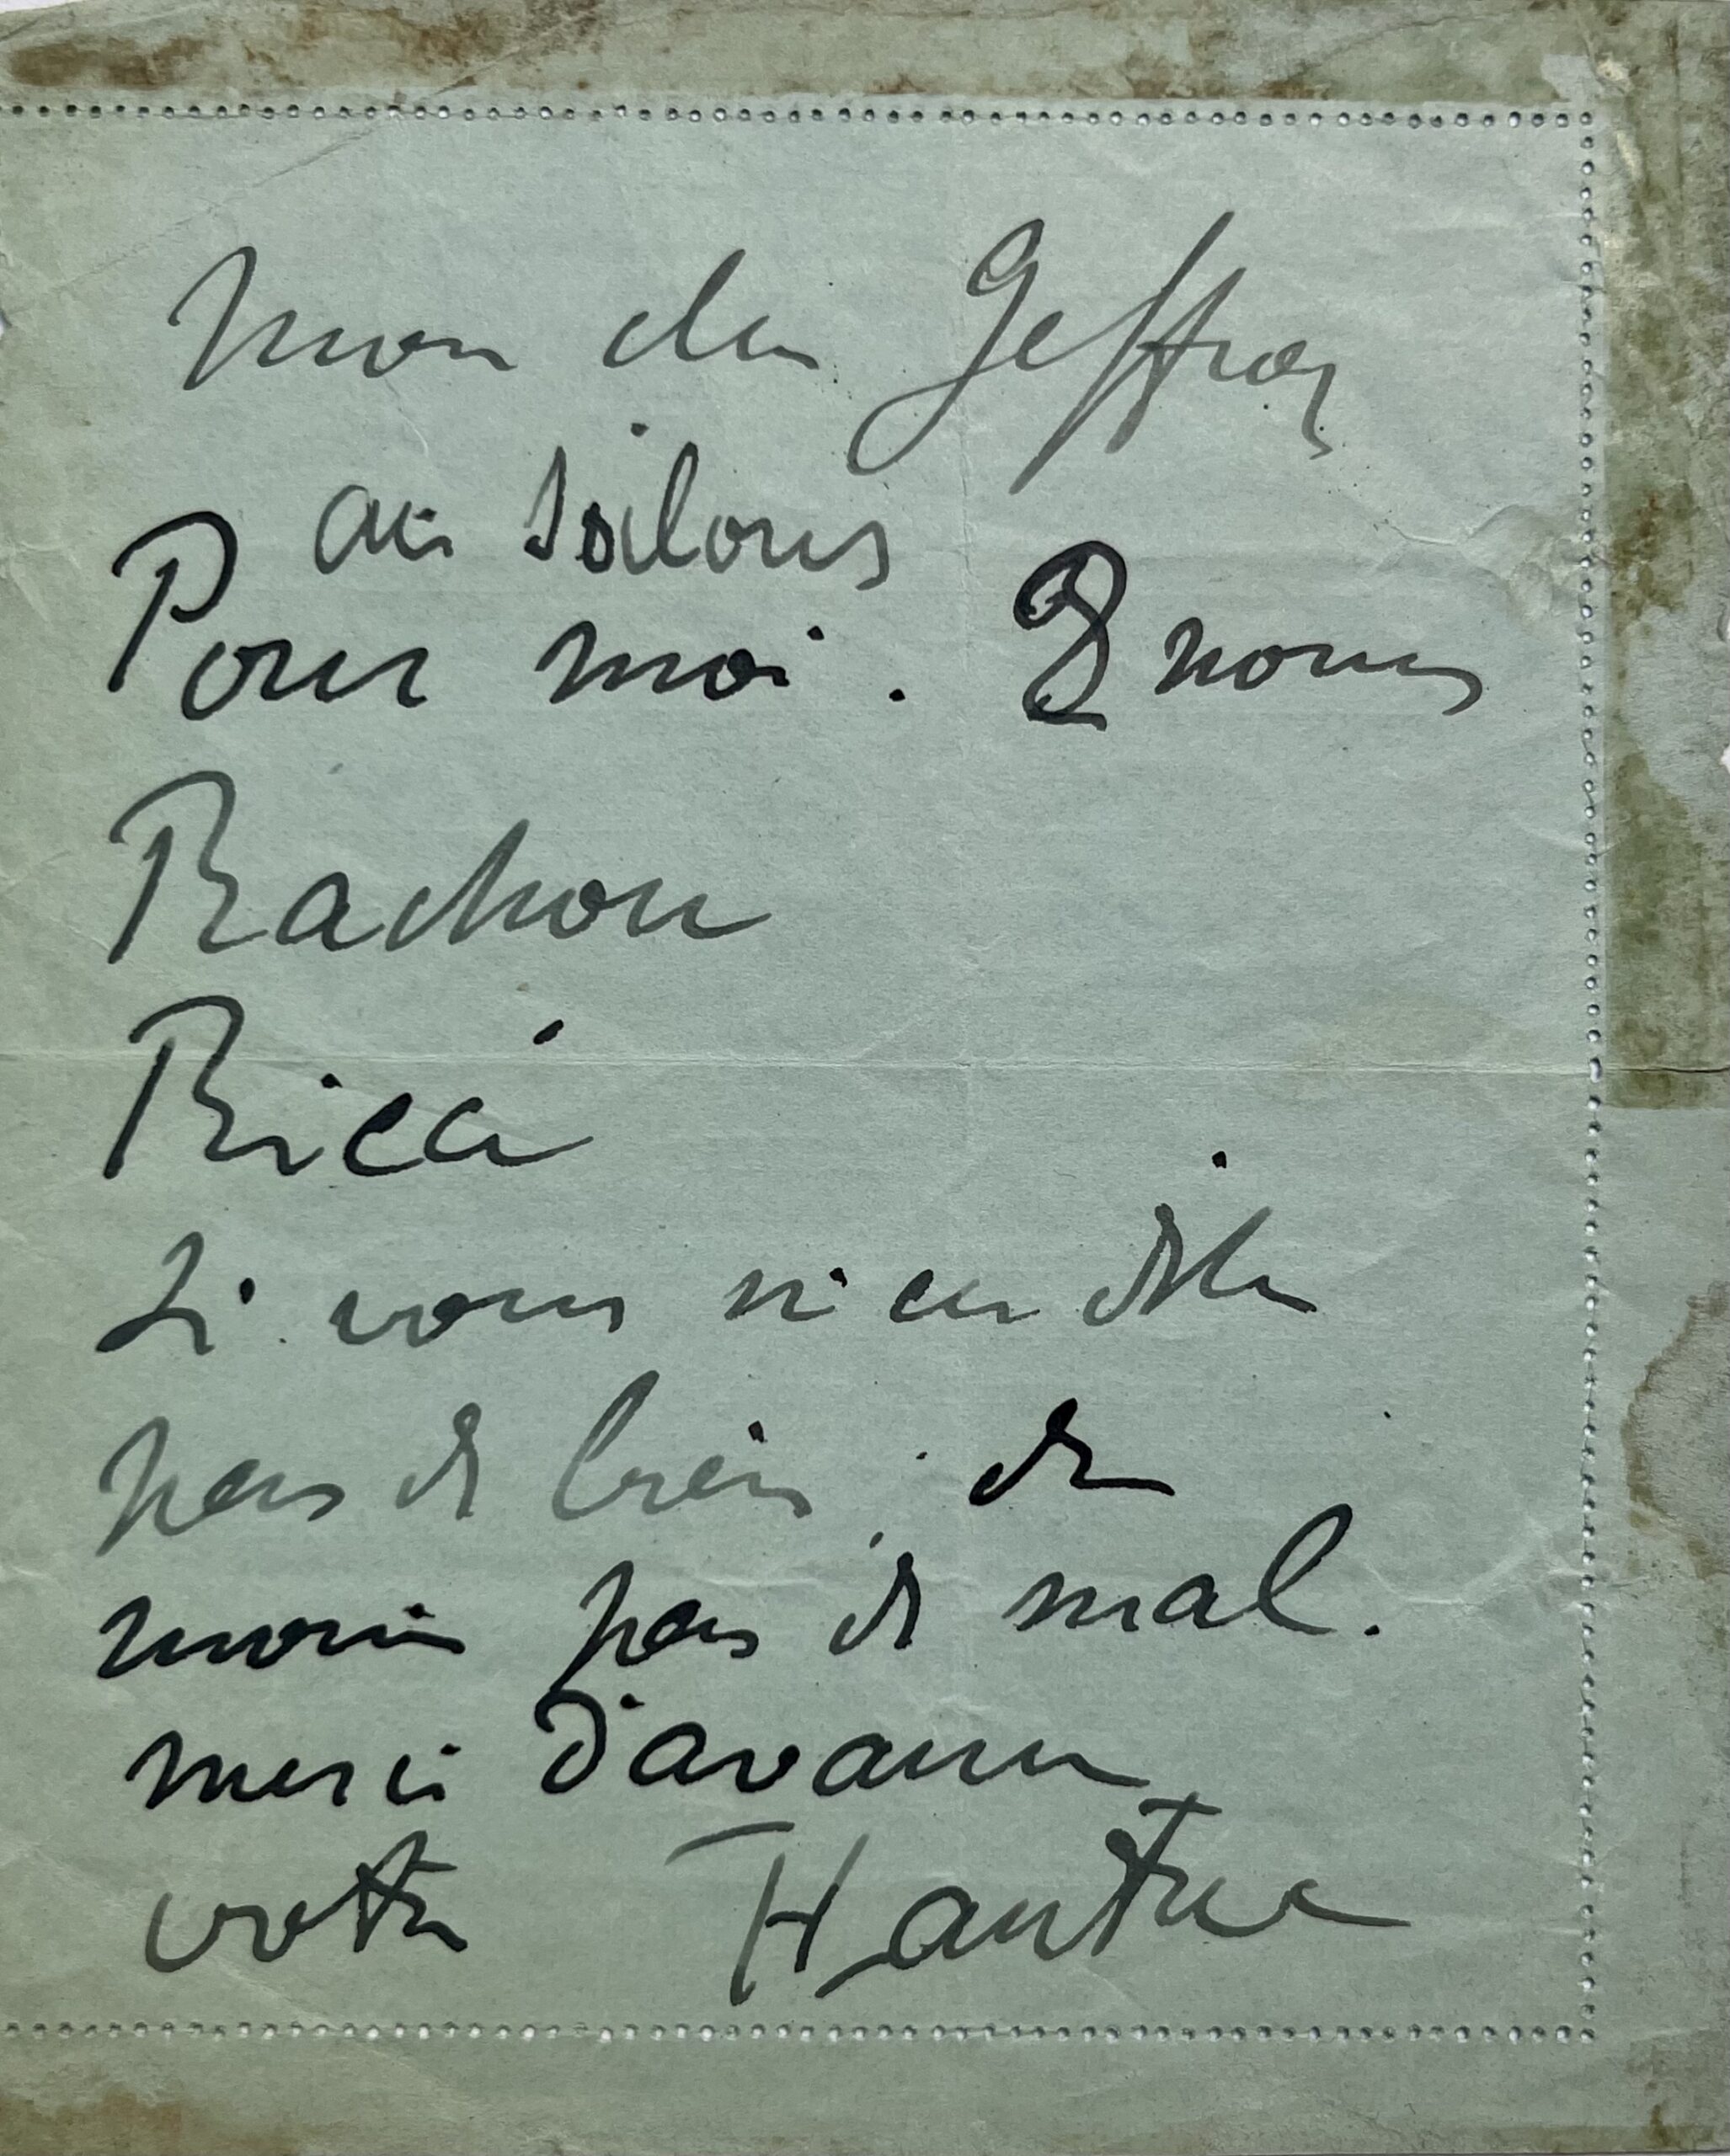 Mon cher Geffroy
au salons
Pour moi. 2 noms
Rachou
Ricci
Si vous n'en dites
pas de bien, du
moins pas de mal.
merci d'avance
votre HLautrec